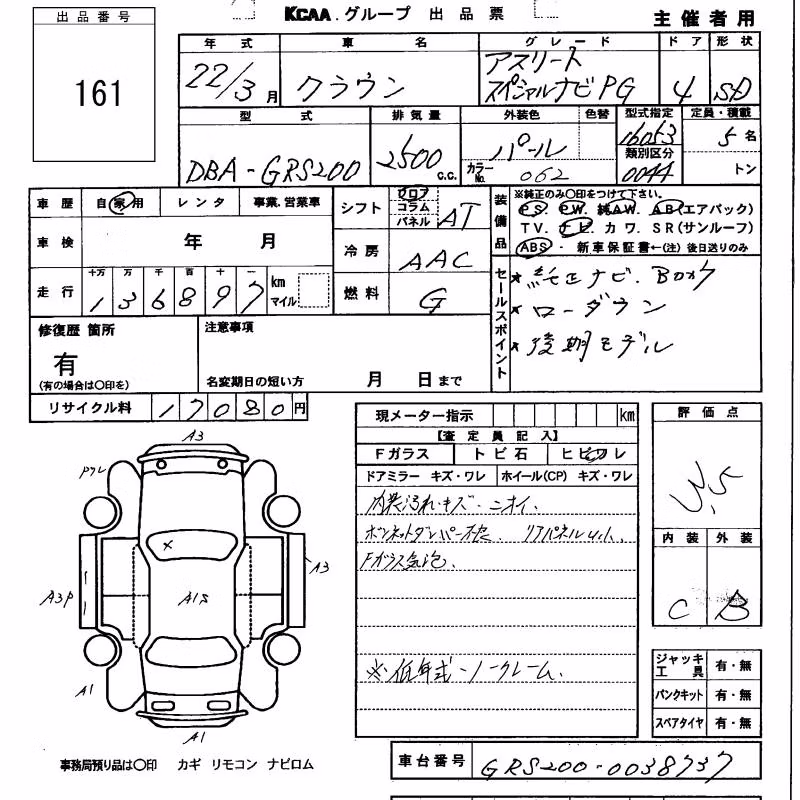 出品番号
161
KCAA.グループ 出品票
主催者用
年式 車名 グレード ドア 形状
22/3月 クラウン アスリート スペシャルナビPG 4 SD
型式 排気量 外装色 色替 型式指定 定員・積載
DBA-GRS200 2500 c.c. パール 16053 5名
カラーNo. 062 類別区分 0044 トン
車歴 自家用 レンタ 事業、営業車
シフト フロア コラム パネル AT
車検 年 月
冷房 AAC
走行 十万 万 千 百 十 一 km マイル
136897
燃料 G
装備品
※純正のみ〇印をつけて下さい。
PS. PW. 純AW. AB(エアバック)
TV. ナビ. カワ. SR(サンルーフ)
ABS・ 新車保証書←(注)後日送りのみ
セールスポイント
★純正ナビ. Bカメラ
★ローダウン
★後期モデル
修復歴 箇所
有
(有の場合は〇印を)
注意事項
名変期日の短い方 月 日まで
リサイクル料 17080円
現メーター指示 km
【査定員記入】
Fガラス トビ石 ヒビワレ
ドアミラー キズ・ワレ ホイール(CP) キズ・ワレ
内装汚れ・キズ・ニオイ.
ボンネットダンパー不良.
Fガラス気泡.
※低年式-ノークレーム.
評価点
3.5
内装 外装
C B
ジャッキ工具 有・無
パンクキット 有・無
スペアタイヤ 有・無
A3
×
A3
A3P
A1S
A1
A1
事務局預り品は〇印 カギ リモコン ナビロム
車台番号 GRS200-0038737